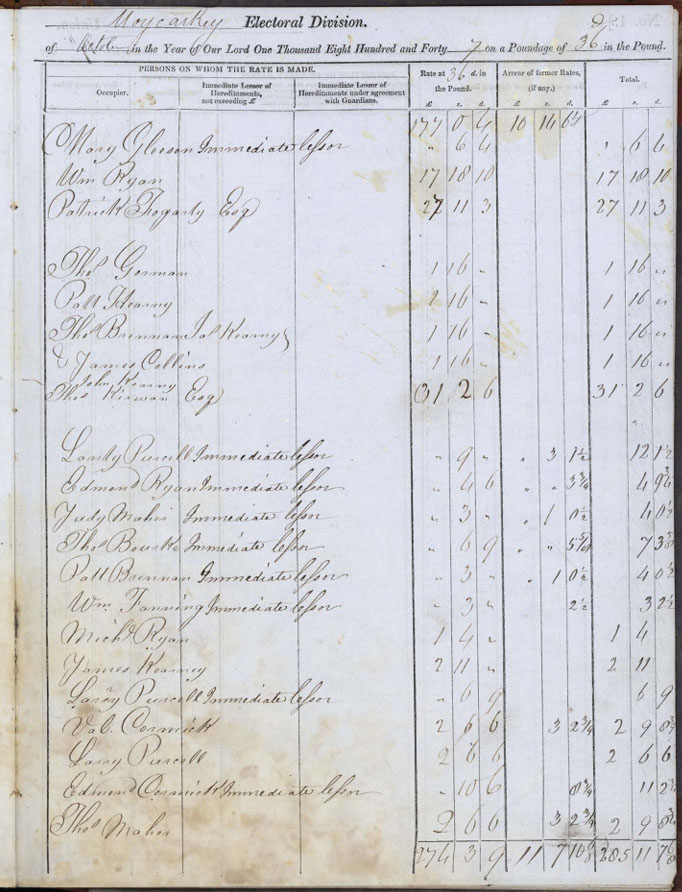 Moycarkey Electoral Division.
of October in the Year of Our Lord One Thousand Eight Hundred and Forty 7 on a Poundage of 36 in the Pound.
PERSONS ON WHOM THE RATE IS MADE. Rate at 36 d. in the Pound. Arrear of former Rates, (if any.) Total.
Occupier. Immediate Lessor of Hereditaments, not exceeding £ Immediate Lessor of Hereditaments under agreement with Guardians. £ s. d. £ s. d. £ s. d.
177 0 4 10 14
Mary Gleeson Immediate lessor " 6 4 " 6 4
Wm Ryan 17 18 10 17 18 10
Patrick Fogarty Esq 27 11 3 27 11 3
Thos Gorman 1 16 " 1 16 "
Patt Kearny 1 16 " 1 16 "
Thos Brennan Jas Kearny 1 16 " 1 16 "
& James Collins 1 16 " 1 16 "
John Kearny
Thos Kirwan Esq 31 2 6 31 2 6
Larry Purcell Immediate lessor " 9 " " 3 1½ 12 1½
Edmond Ryan Immediate lessor " 4 6 " " 3¾ 4 9¾
Judy Maher Immediate lessor " 3 " " 1 0½ 4 0½
Thos Bourke Immediate lessor " 6 9 " " 7
Patt Brennan Immediate lessor " 3 " " 1 0½ 4 0½
Wm Fanning Immediate lessor " 3 " 2½ 3 2½
Michl Ryan 1 4 " 1 4
James Kearney 2 11 " 2 11
Larry Purcell Immediate lessor " 6 9 6 9
Val. Cormick 2 6 6 3 2¾ 2 9 8¾
Larry Purcell 2 6 6 2 6 6
Edmond Cormick Immediate lessor " 10 6 8¾ 11 2¾
Thos Maher 2 6 6 3 2¾ 2 9 8¾
274 3 9 11 7 285 11